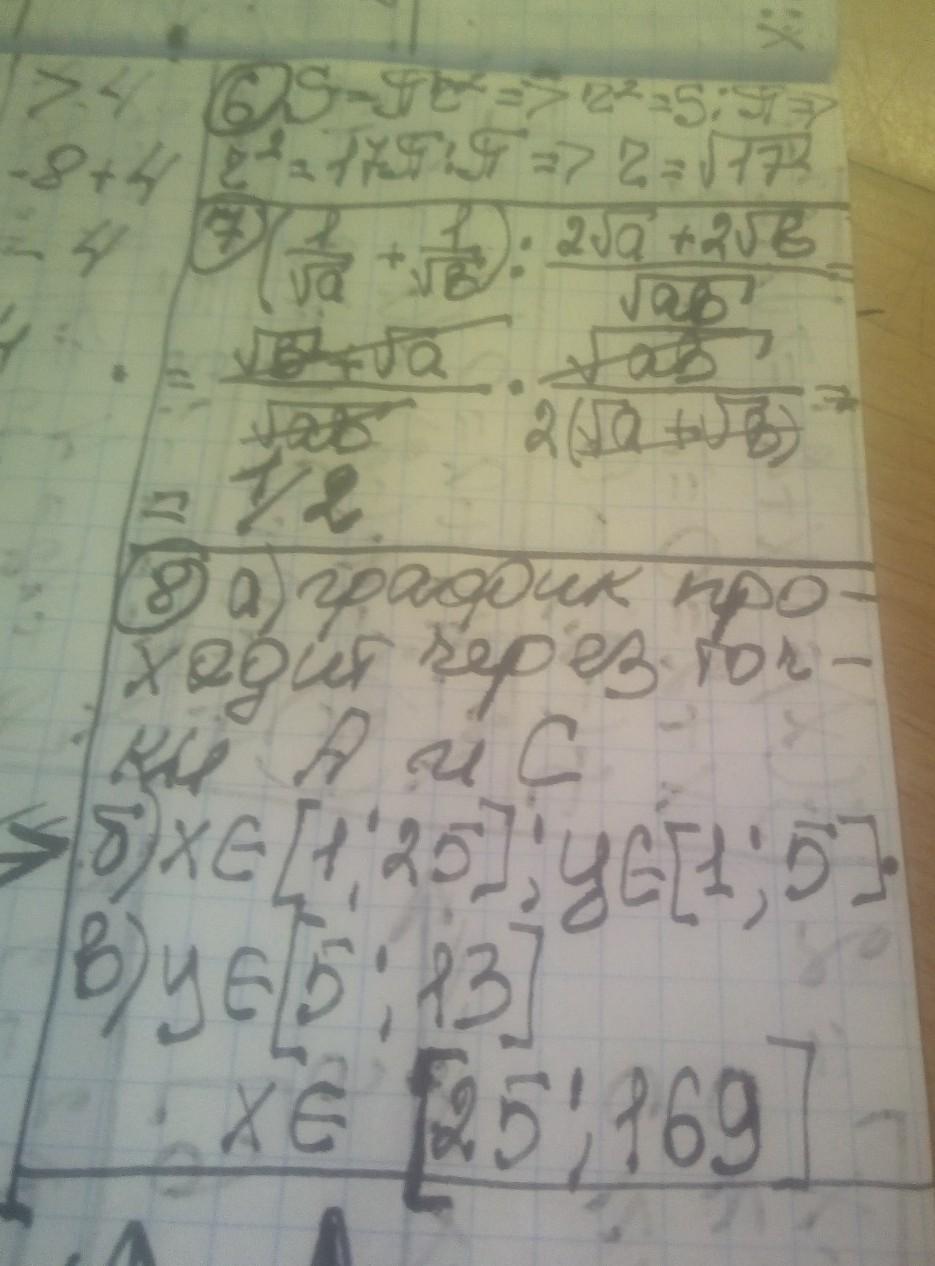 > 4
-8 + 4
= 4
6 S = πr² => r² = S : π =>
r² = 17π : π => r = √17
7 (1/√a + 1/√b) : (2√a + 2√b)/√ab =
= (√b + √a)/√ab · √ab/2(√a + √b) =
= 1/2
8 а) график про-
ходит через точ-
ки А и С
б) x ∈ [1; 25]; y ∈ [1; 5].
в) y ∈ [5; 13]
x ∈ [25; 169]